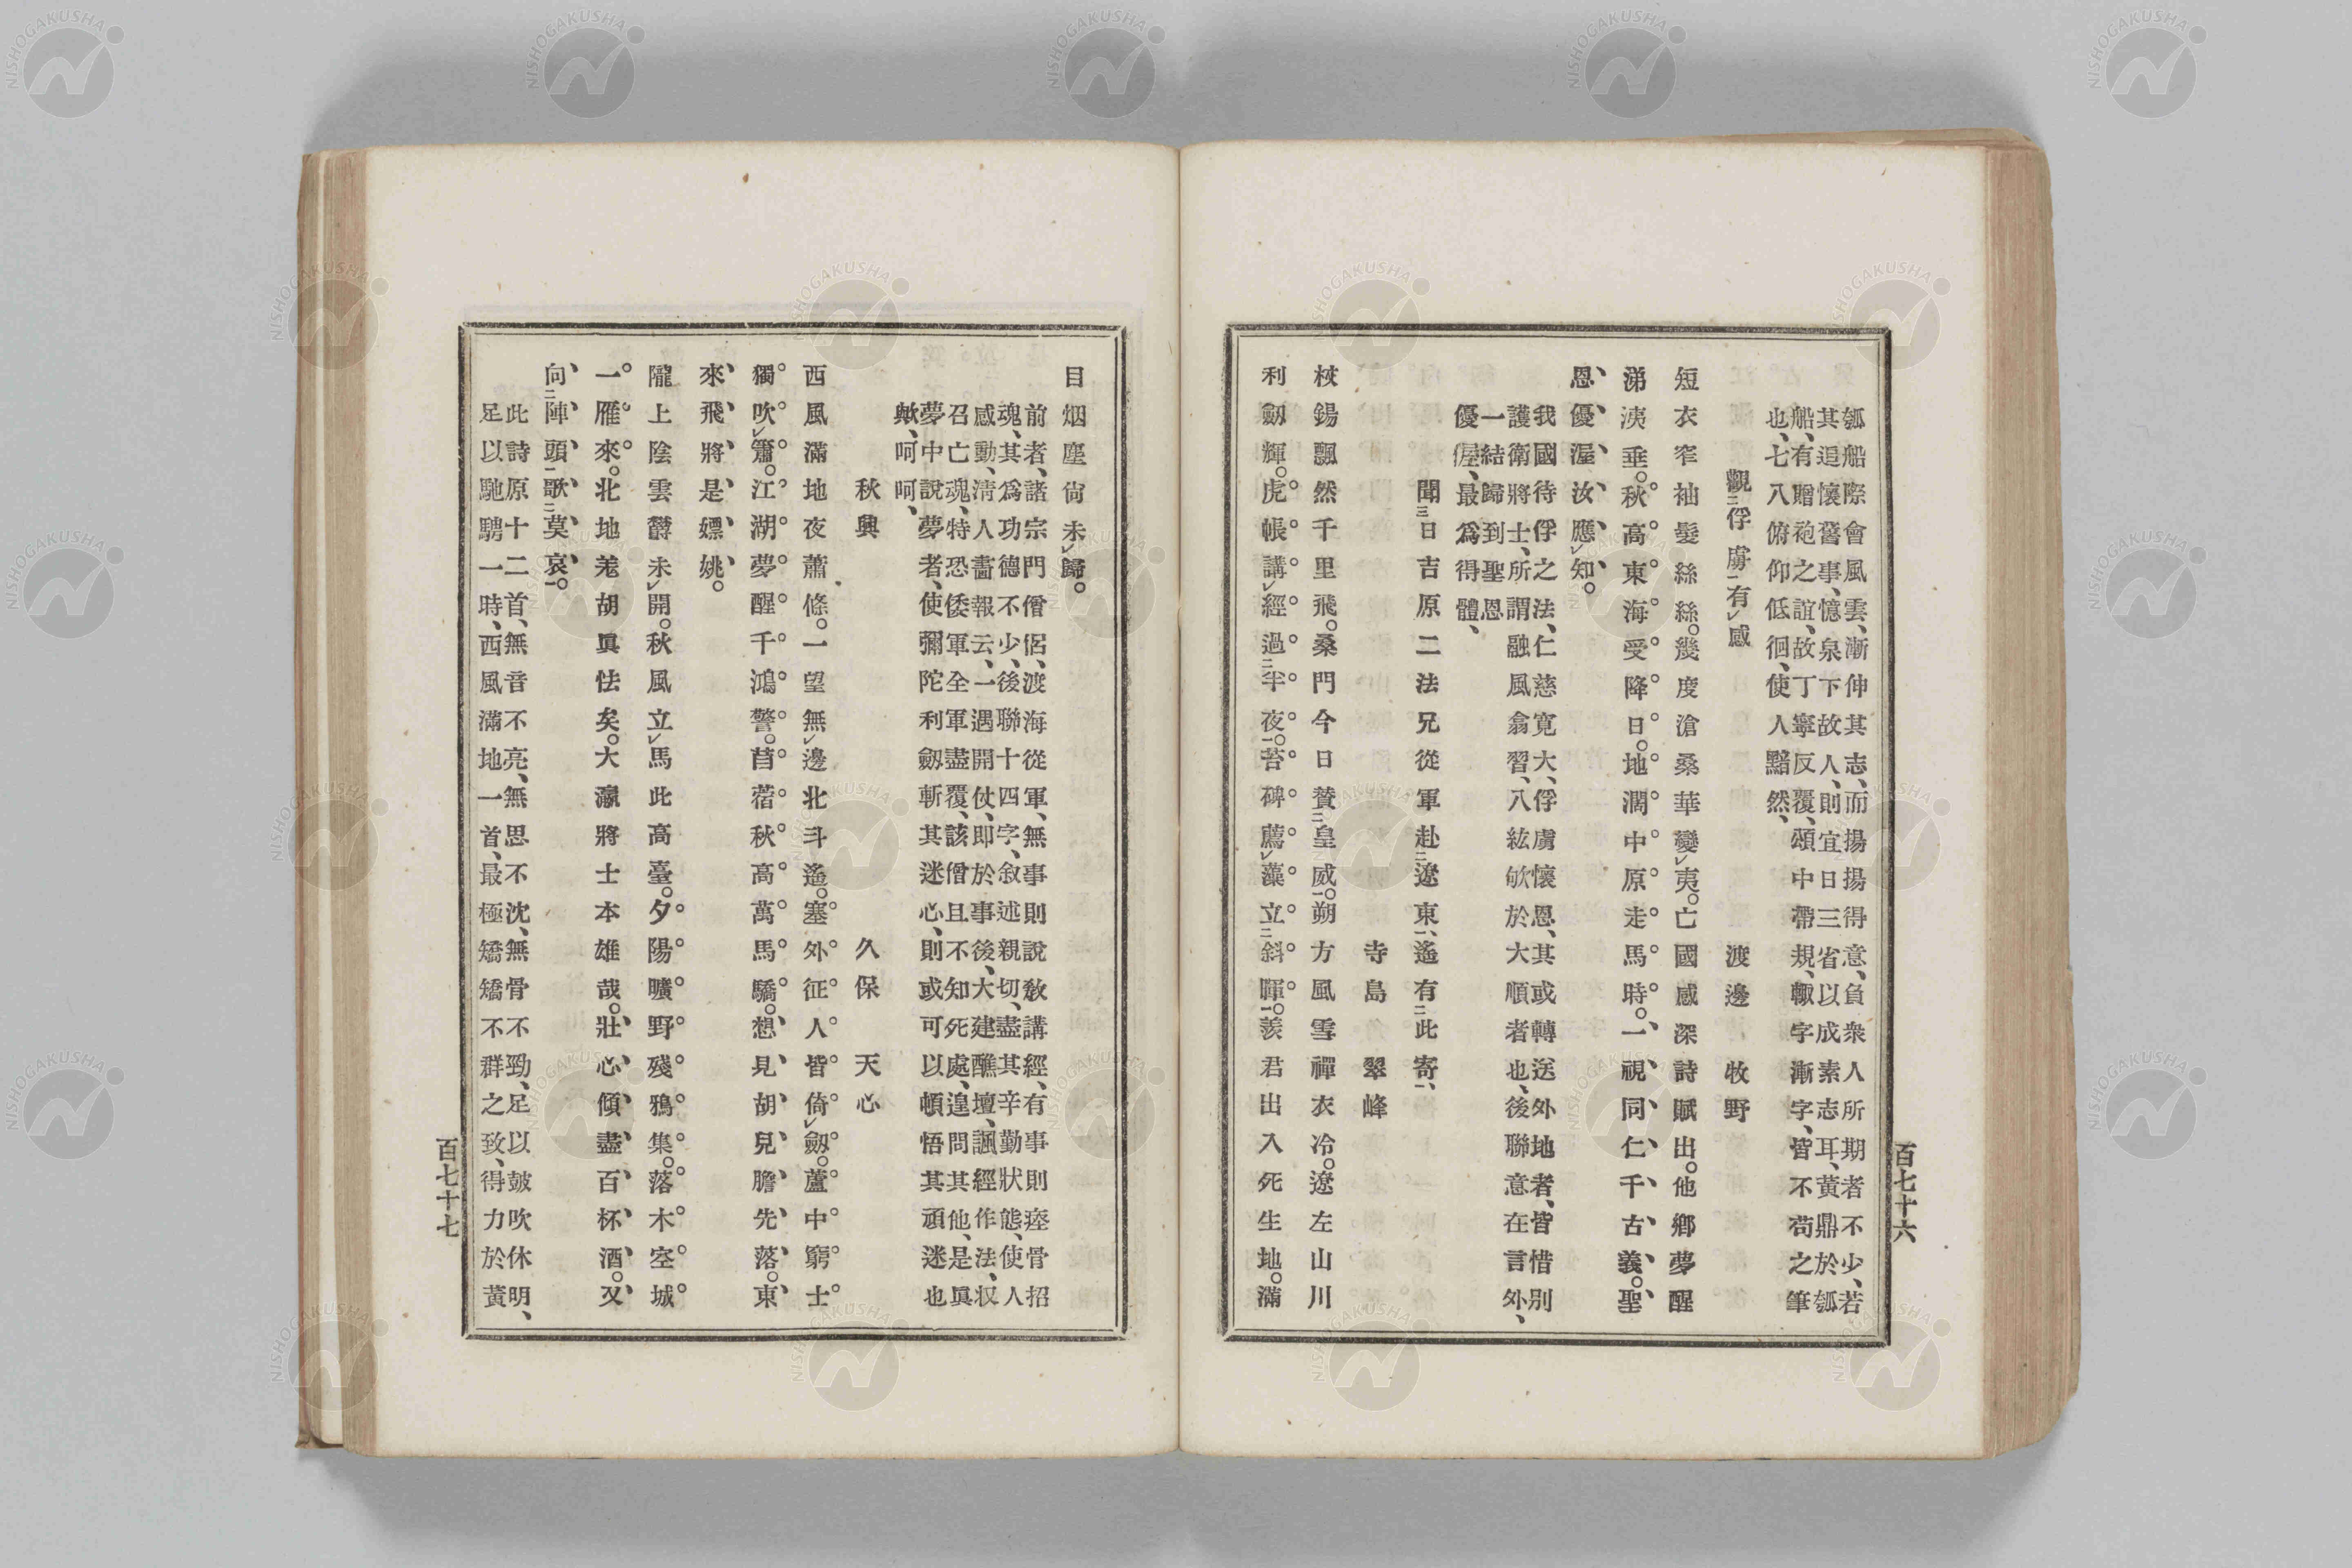 瓠船際會風雲、漸伸其志、而揚揚得意、負衆人所期者不少、若
其追懷舊事、憶泉下故人、則宜日三省以成素志耳、黄鼎於瓠
船、有贈袍之誼、故丁寧反覆、頌中帶規、輙字漸字、皆不苟之筆
也、七八俯仰低徊、使人黯然、
觀二俘虜一有レ感　渡邊牧野
短衣窄袖髮絲絲。幾度滄桑華變レ夷。亡國感深詩賦出。他鄕夢醒
涕洟垂。秋高東海受降日。地濶中原走馬時。一視同仁千古義。聖
恩優渥汝應レ知。
我國待俘之法、仁慈寛大、俘虜懷恩、其或轉送外地者、皆惜別
護衛將士、所謂融風翕習、八紘欨於大順者也、後聯意在言外、
一結歸到聖恩
優渥、最爲得體、
聞三日吉原二法兄從軍赴二遼東一、遙有二此寄一、
寺島翠峰
杖錫飄然千里飛。桑門今日贊二皇威一。朔方風雪禪衣冷。遼左山川
利劒輝。虎帳講レ經過二半夜一。苔碑薦レ藻立二斜暉一。羨君出入死生地。滿
百七十六
目烟塵尙未レ歸。
前者、諸宗門僧侶、渡海從軍、無事則說敎講經、有事則瘞骨招
魂、其爲功德不少、後聯十四字、叙述親切、盡其辛勤狀態、使人
感動、淸人書報云、一遇開仗、卽於事後、大建醮壇、諷經作法、以
召亡魂、特恐倭軍全軍盡覆、該僧且不知死處、遑問其他、是眞
夢中說夢者、使彌陀利劒斬其迷心、則或可以頓悟其頑迷也
歟、呵呵、
秋興　久保天心
西風滿地夜蕭條。一望無レ邊北斗遙。塞外征人皆倚レ劒。蘆中窮士
獨吹レ簫。江湖夢醒千鴻警。苜蓿秋高萬馬驕。想見胡兒膽先落。東
來飛將是嫖姚。
隴上陰雲鬱未レ開。秋風立レ馬此高臺。夕陽曠野殘鴉集。落木空城
一雁來。北地羌胡眞怯矣。大瀛將士本雄哉。壯心傾盡百杯酒。又
向二陣頭一歌二莫哀一。
此詩原十二首、無音不亮、無思不沈、無骨不勁、足以皷吹休明、
足以馳騁一時、西風滿地一首、最極矯矯不群之致、得力於黃
百七十七